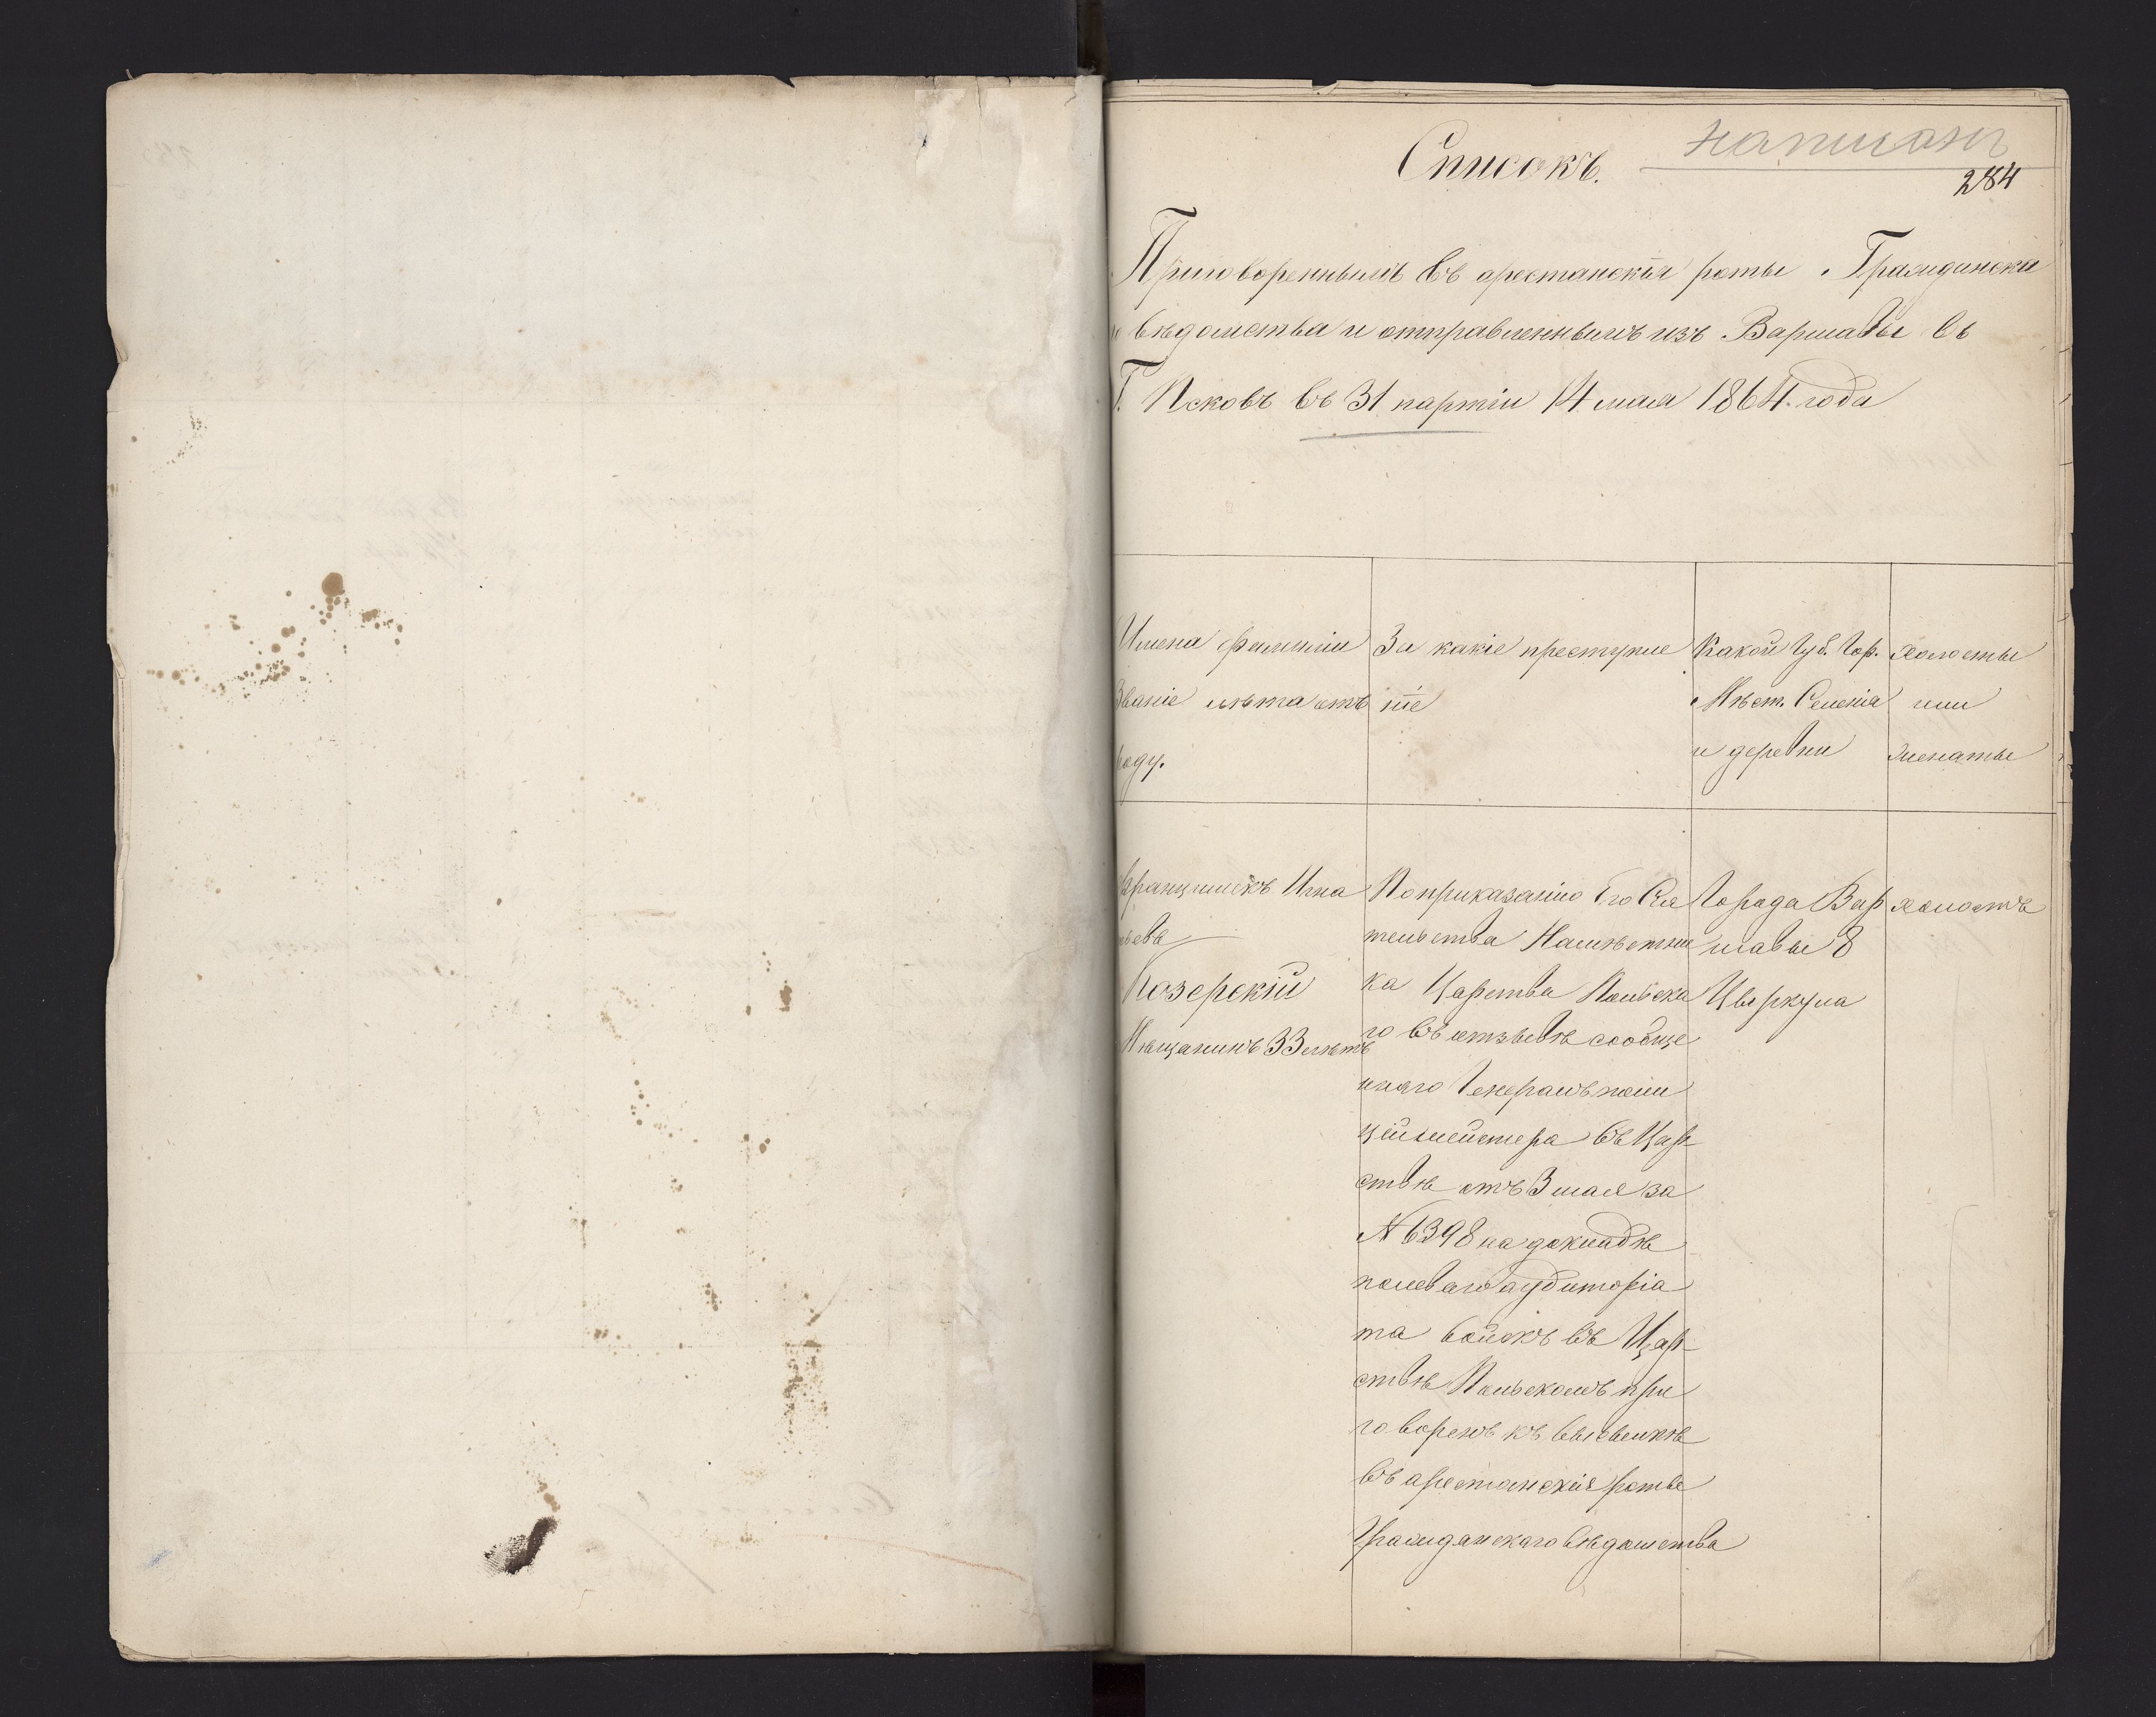 написанъ
Списокъ.
284
Приговореннымъ въ арестанскія роты Гражданска
го вѣдомства и отправленнымъ изъ Варшавы въ
Г. Псковъ въ 31 партіи 14 мая 1864. года
Имена фамиліи
Званіе лѣта отъ
роду.
За какіе преступле
ніе
Какой Губ. Гор.
Мѣст. Селенія
и деревни
холосты
или
женаты
Францишекъ Игна
тьевъ
Козерскій
Мѣщанинъ 33 лѣтъ
По приказанію Его Сія
тельства Намѣстни
ка Царства Польска
го въ отзывѣ сообще
ннаго Генералъ поли
ційместера въ Цар
ствѣ отъ 3 мая за
№ 6398 на докладѣ
полеваго аудиторіа
та войскъ въ Цар
ствѣ Польскомъ при
говоренъ къ высылкѣ
въ арестанскія роты
Гражданскаго вѣдомства
Города Вар
шавы 8
Цыркула
холостъ